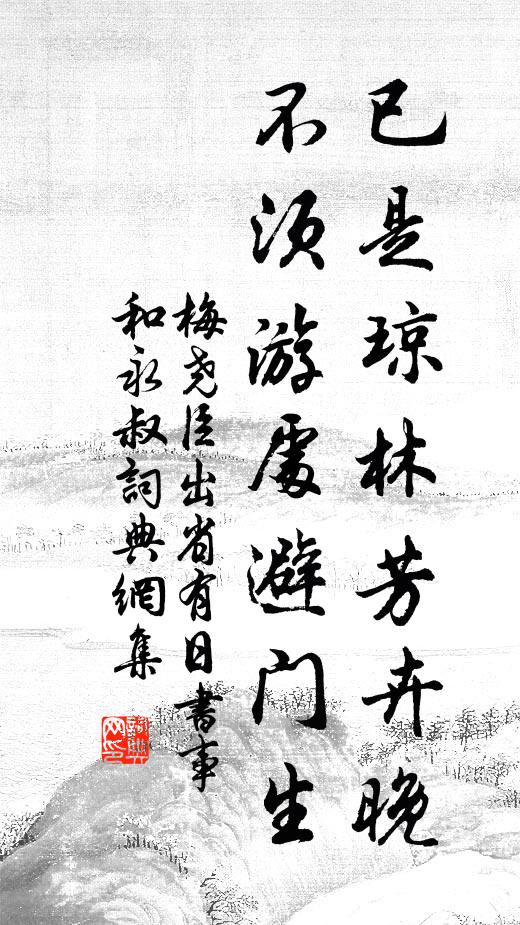 已是琼林芳卉晚
不须游處避门生
梅尧臣出省有日書事
和永叔詞典網集
詞典網印